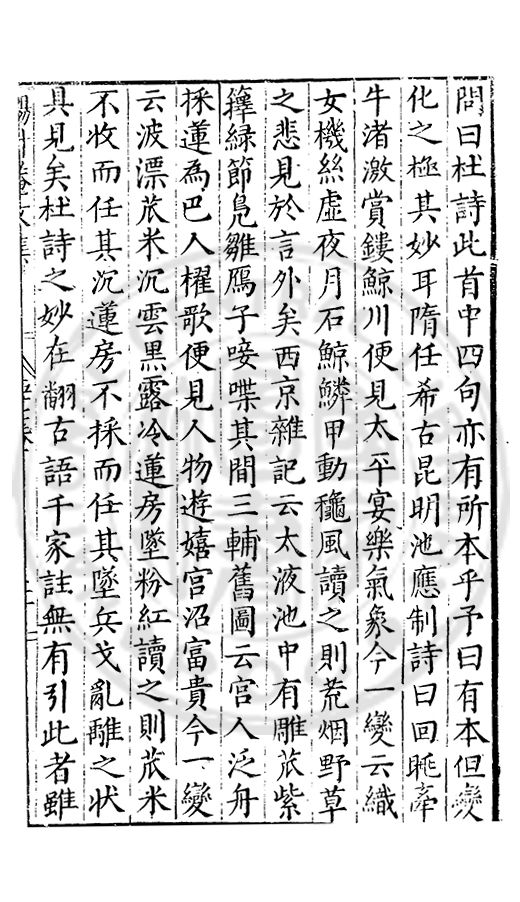 問曰杜詩此首中四句亦有所本乎予曰有本但變
化之極其妙耳隋任希古昆明池應制詩曰回眺牽
牛渚激賞鏤鯨川便見太平宴樂氣象今一變云織
女機絲虛夜月石鯨鱗甲動秋風讀之則荒烟野草
之悲見於言外矣西京雜記云太液池中有雕菰紫
籜綠節鳧雛鴈子唼喋其間三輔舊圖云宮人泛舟
採蓮為巴人櫂歌便見人物遊嬉宮沼富貴今一變
云波漂菰米沉雲黑露冷蓮房墜粉紅讀之則菰米
不收而任其沉蓮房不採而任其墜兵戈亂離之狀
具見矣杜詩之妙在翻古語千家註無有引此者雖